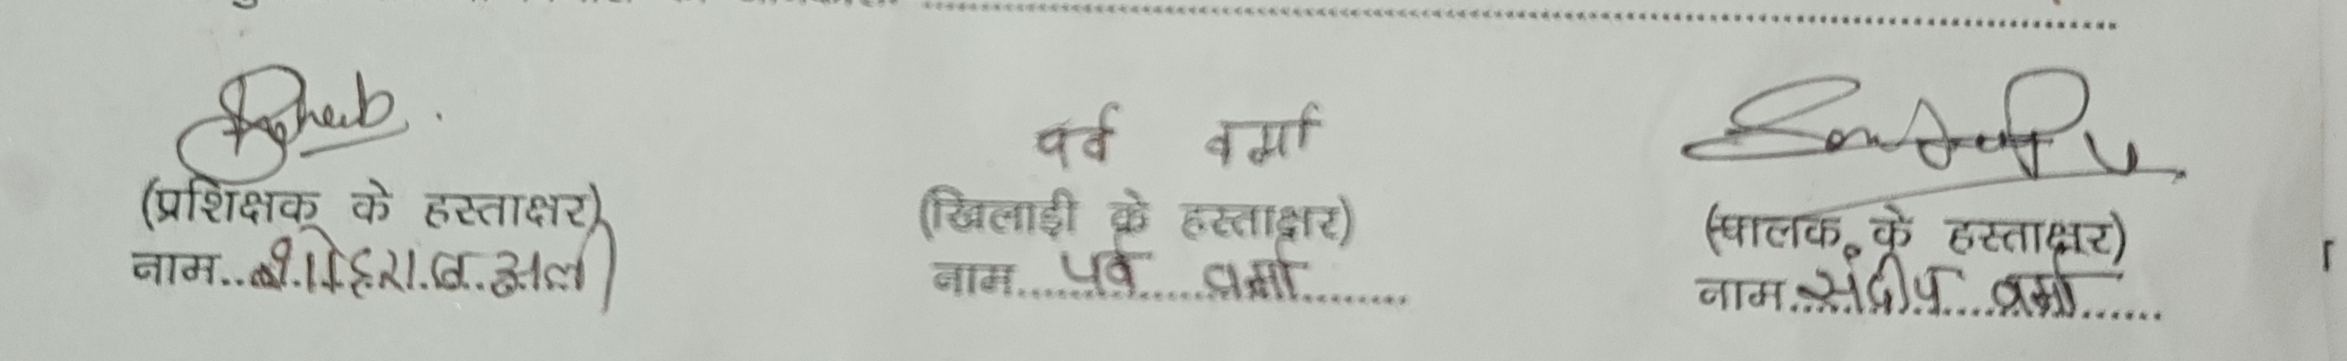 पर्व वर्मा
(प्रशिक्षक के हस्ताक्षर) (खिलाड़ी के हस्ताक्षर) (पालक के हस्ताक्षर)
नाम.. अली नाम... पर्व वर्मा....... नाम.. संदीप वर्मा......